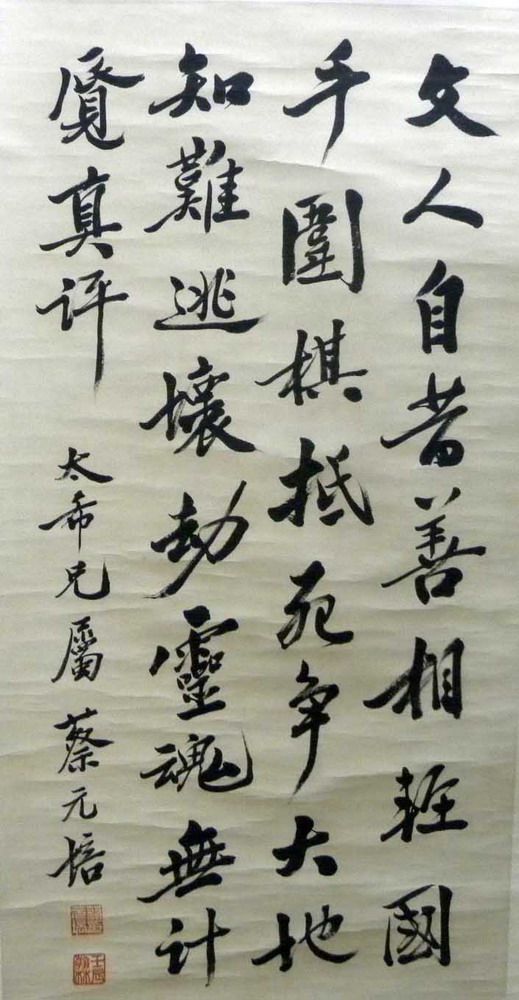 文人自昔善相輕國
手圍棋抵死争大地
知難逃壞劫靈魂無計
覔真评
太希兄屬蔡元培